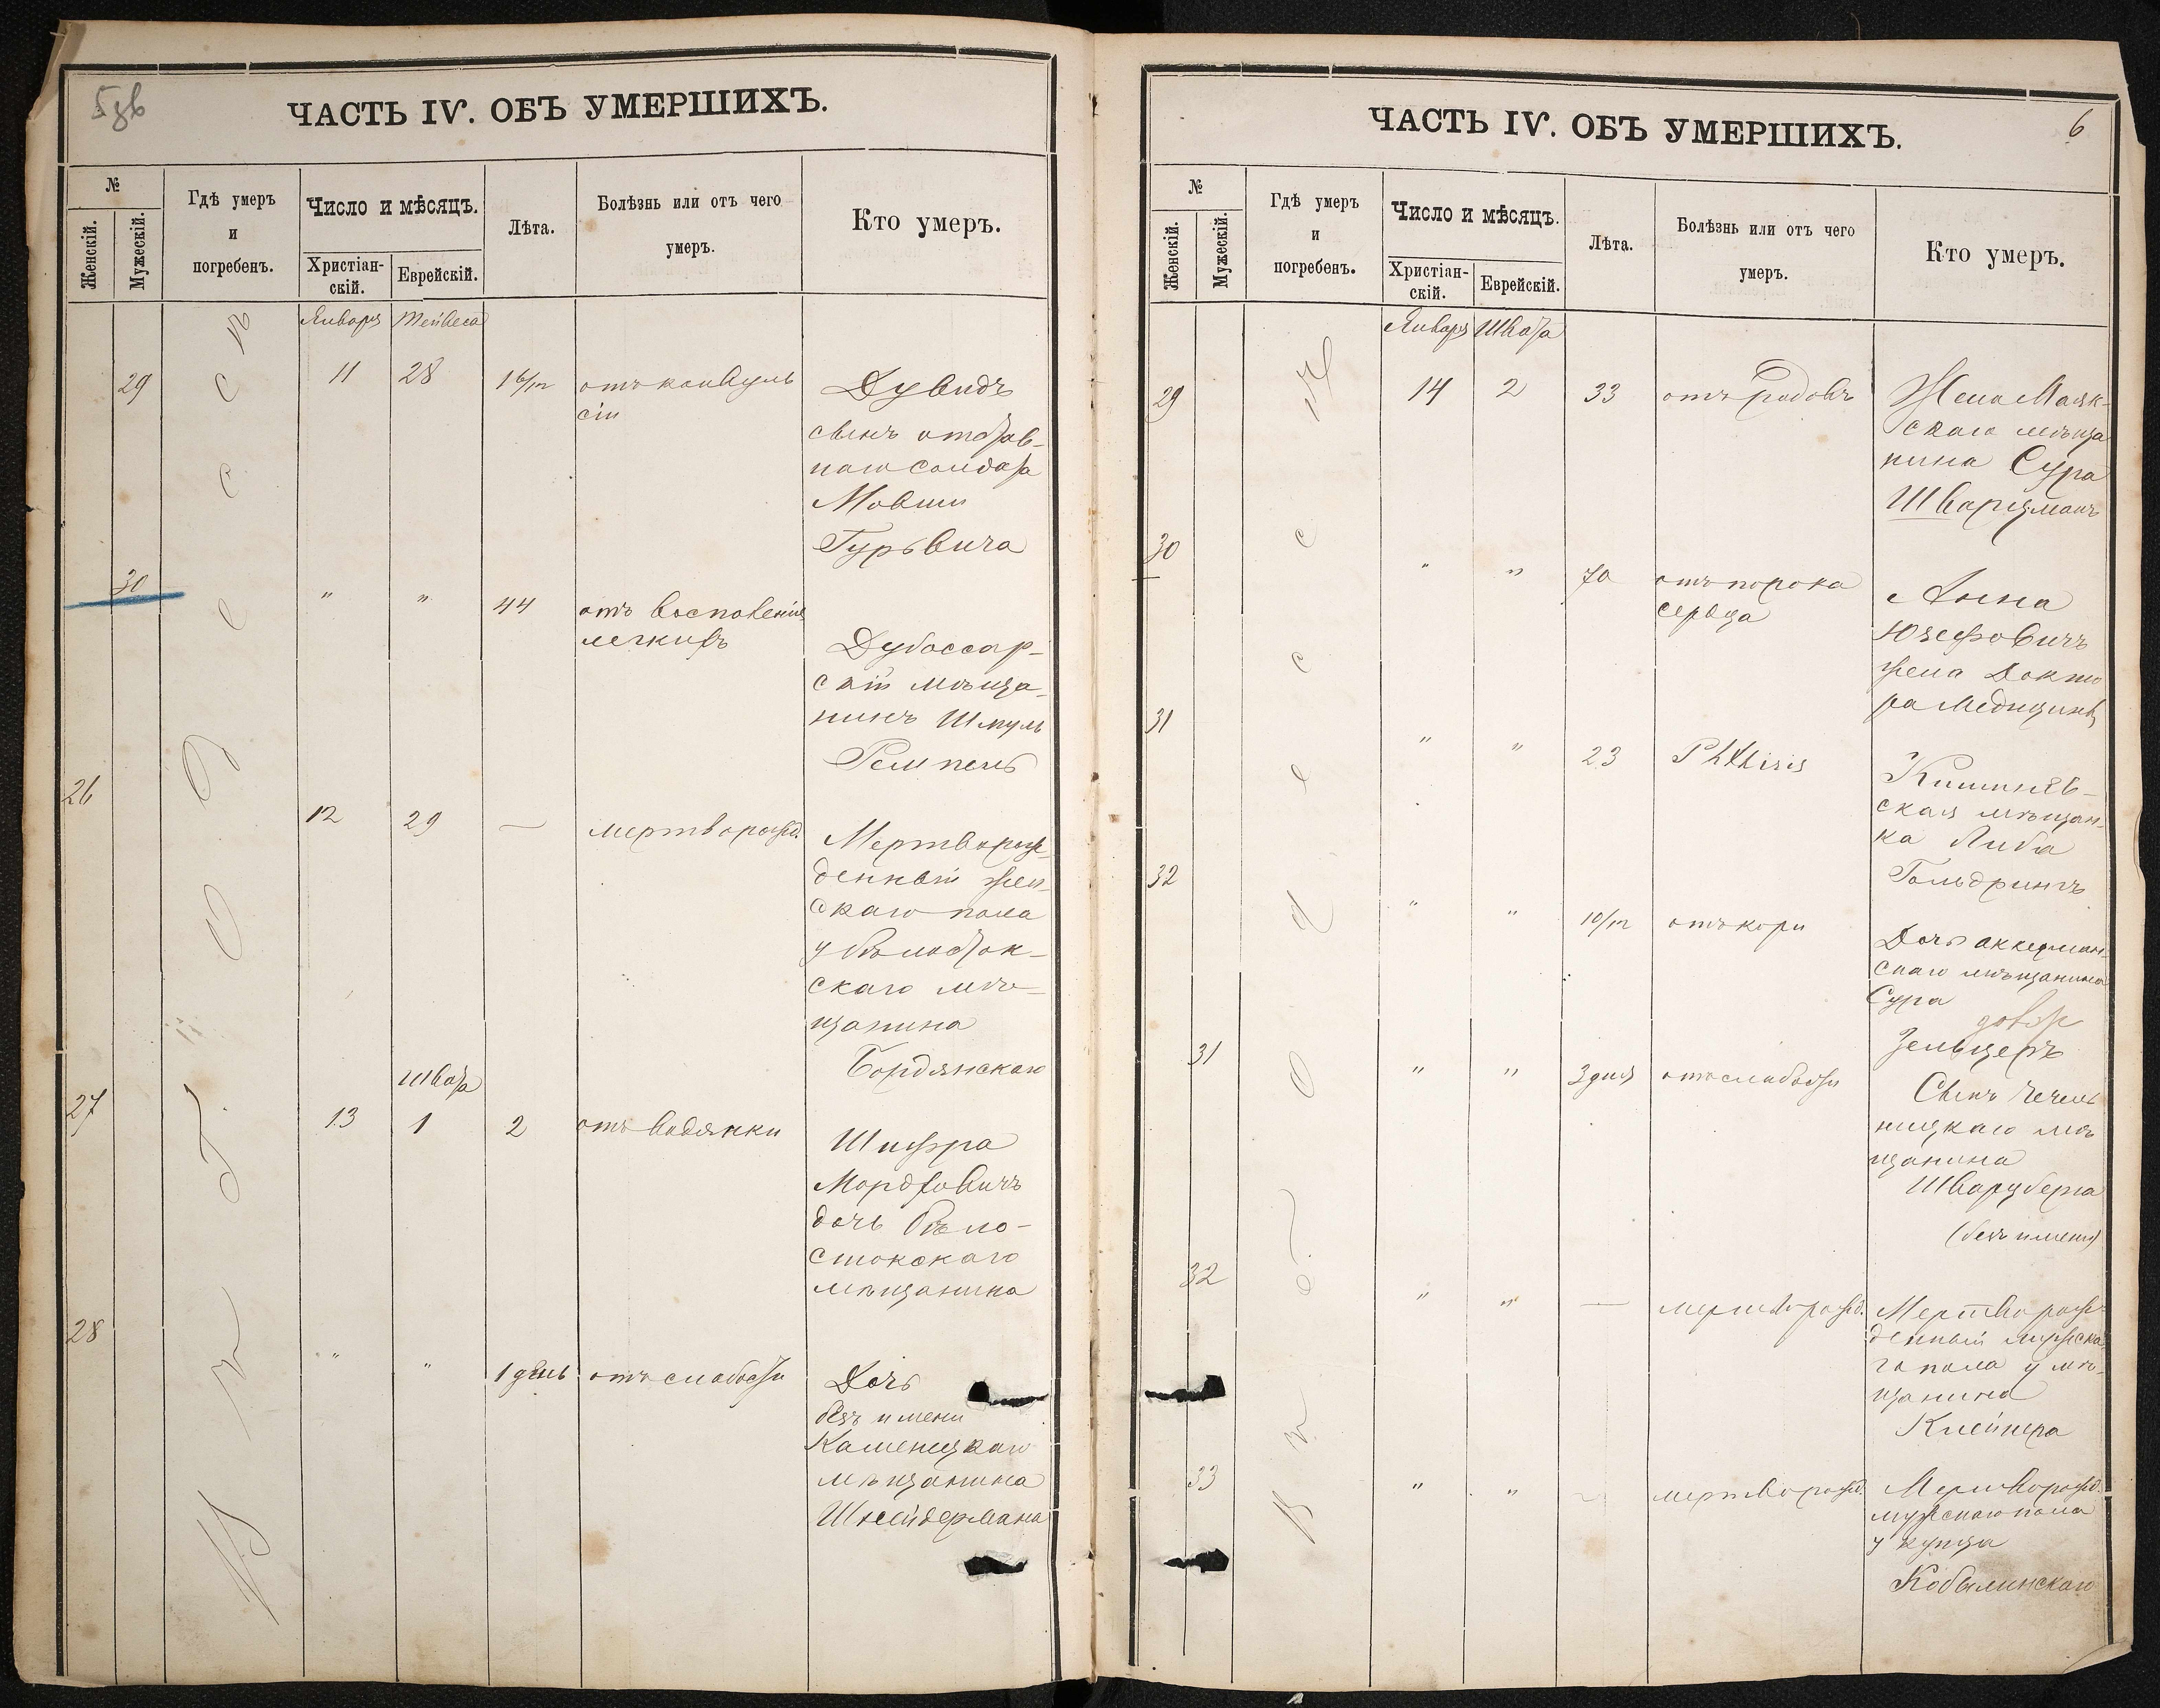 5зв
ЧАСТЬ IV. ОБЪ УМЕРШИХЪ.
№
Женскій.
Мужескій.
Гдѣ умеръ
и
погребенъ.
Число и мѣсяцъ.
Христіан-
скій.
Еврейскій.
Лѣта.
Болѣзнь или отъ чего
умеръ.
Кто умеръ.
Въ г. Одессѣ
Января Тейвеса
29 11 28 1 6/m отъ конвуль
сіи
Дувидъ
сынъ отстав-
наго солдата
Мовши
Гурьвича
30 " " 44 отъ восполенія
легкихъ
Дубоссар-
скій мѣща-
нинъ Шмуль
Ремпель
26 12 29 — мертворожд.
Мертворож-
денный жен-
скаго пола
у бѣлосток-
скаго мѣ-
щанина
Бордянскаго
Швата
27 13 1 2 отъ водянки
Шифра
Мордховичъ
дочь бѣло-
стокскаго
мѣщанина
28 " " 1 день отъ слабости
Дочь
безъ имени
Каменецкаго
мѣщанина
Шнейдермана
ЧАСТЬ IV. ОБЪ УМЕРШИХЪ.
6
№
Женскій.
Мужескій.
Гдѣ умеръ
и
погребенъ.
Число и мѣсяцъ.
Христіан-
скій.
Еврейскій.
Лѣта.
Болѣзнь или отъ чего
умеръ.
Кто умеръ.
Въ г. Одессѣ
Января Швата
29 14 2 33 отъ родовъ
Жена Маяк-
скаго мѣща
нина Сура
Шварцманъ
30 " " 70 отъ порока
сердца
Анна
Юзефовичъ
жена Докто
ра Медицины
31 " " 23 Phthisis
Кишинёв-
ская мѣщан-
ка Либа
Гольдрингъ
32 " " 10/m отъ кори
Дочь аккерман-
скаго мѣщанина
Сура
Зельцеръ
31 " " 3 дня отъ слабости
Сынъ Чечель
ницкаго мѣ
щанина
Шварцберга
(безъ имени)
32 " " — мертворожд.
Мертворож-
денный мужска
го пола у мѣ-
щанина
Клейнера
33 " " — мертворожд.
Мертворожд.
мужскаго пола
у купца
Кобылинскаго